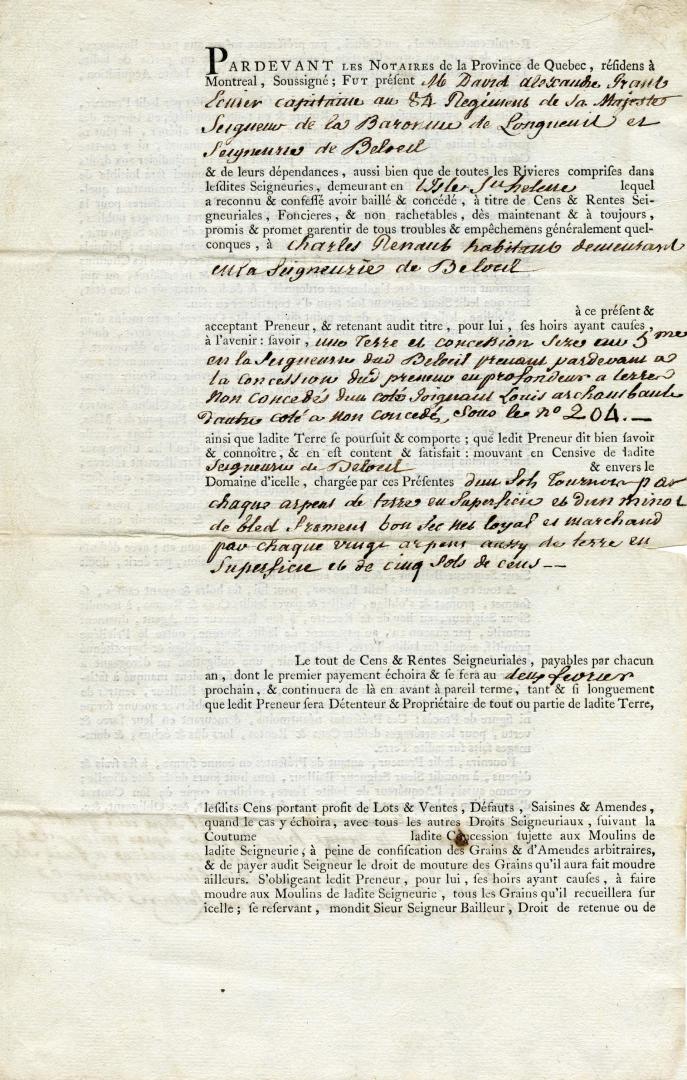 PARDEVANT LES NOTAIRES de la Province de Quebec, résidens à
Montreal, Soussigné; FUT présent Mr David alexandre Grant
Ecuier capitaine au 84 Regiment de Sa Majesté
Seigneur de la Baronnie de Longueuil et
Seigneurie de Beloeil
& de leurs dépendances, aussi bien que de toutes les Rivieres comprises dans
lesdites Seigneuries, demeurant en L'Isle Ste helene lequel
a reconnu & confessé avoir baillé & concédé, à titre de Cens & Rentes Sei-
gneuriales, Foncieres, & non rachetables, dès maintenant & à toujours,
promis & promet garentir de tous troubles & empêchemens généralement quel-
conques, à Charles Renaut habitant demeurant
en la Seigneurie de Beloeil
à ce présent &
acceptant Preneur, & retenant audit titre, pour lui, ses hoirs ayant causes,
à l'avenir: savoir, une Terre et concession Size au 5me
en la Seigneurie dud Beloeil prenant pardevant a
la Concession dud preneur en profondeur a terres
Non Concedés d'un coté Joignant Louis archambault
d'autre coté a non concedé, Sous le no 204.—
ainsi que ladite Terre se poursuit & comporte; que ledit Preneur dit bien savoir
& connoître, & en est content & satisfait: mouvant en Censive de ladite
Seigneurie de Beloeil & envers le
Domaine d'icelle, chargée par ces Présentes d'un Sol Tournois par
chaque arpens de terre en Superficie et d'un minot
de bled froment bon Sec net loyal et marchand
par chaque vingt arpens aussy de terre en
Superficie et de cinq Sols de cens —
Le tout de Cens & Rentes Seigneuriales, payables par chacun
an, dont le premier payement échoira & se fera au deux fevrier
prochain, & continuera de là en avant à pareil terme, tant & si longuement
que ledit Preneur sera Détenteur & Propriétaire de tout ou partie de ladite Terre,
lesdits Cens portant profit de Lots & Ventes, Défauts, Saisines & Amendes,
quand le cas y échoira, avec tous les autres Droits Seigneuriaux, suivant la
Coutume ladite Concession sujette aux Moulins de
ladite Seigneurie, à peine de confiscation des Grains & d'Amendes arbitraires,
& de payer audit Seigneur le droit de mouture des Grains qu'il aura fait moudre
ailleurs. S'obligeant ledit Preneur, pour lui, ses hoirs ayant causes, à faire
moudre aux Moulins de ladite Seigneurie, tous les Grains qu'il recueillera sur
icelle; se reservant, mondit Sieur Seigneur Bailleur, Droit de retenue ou de